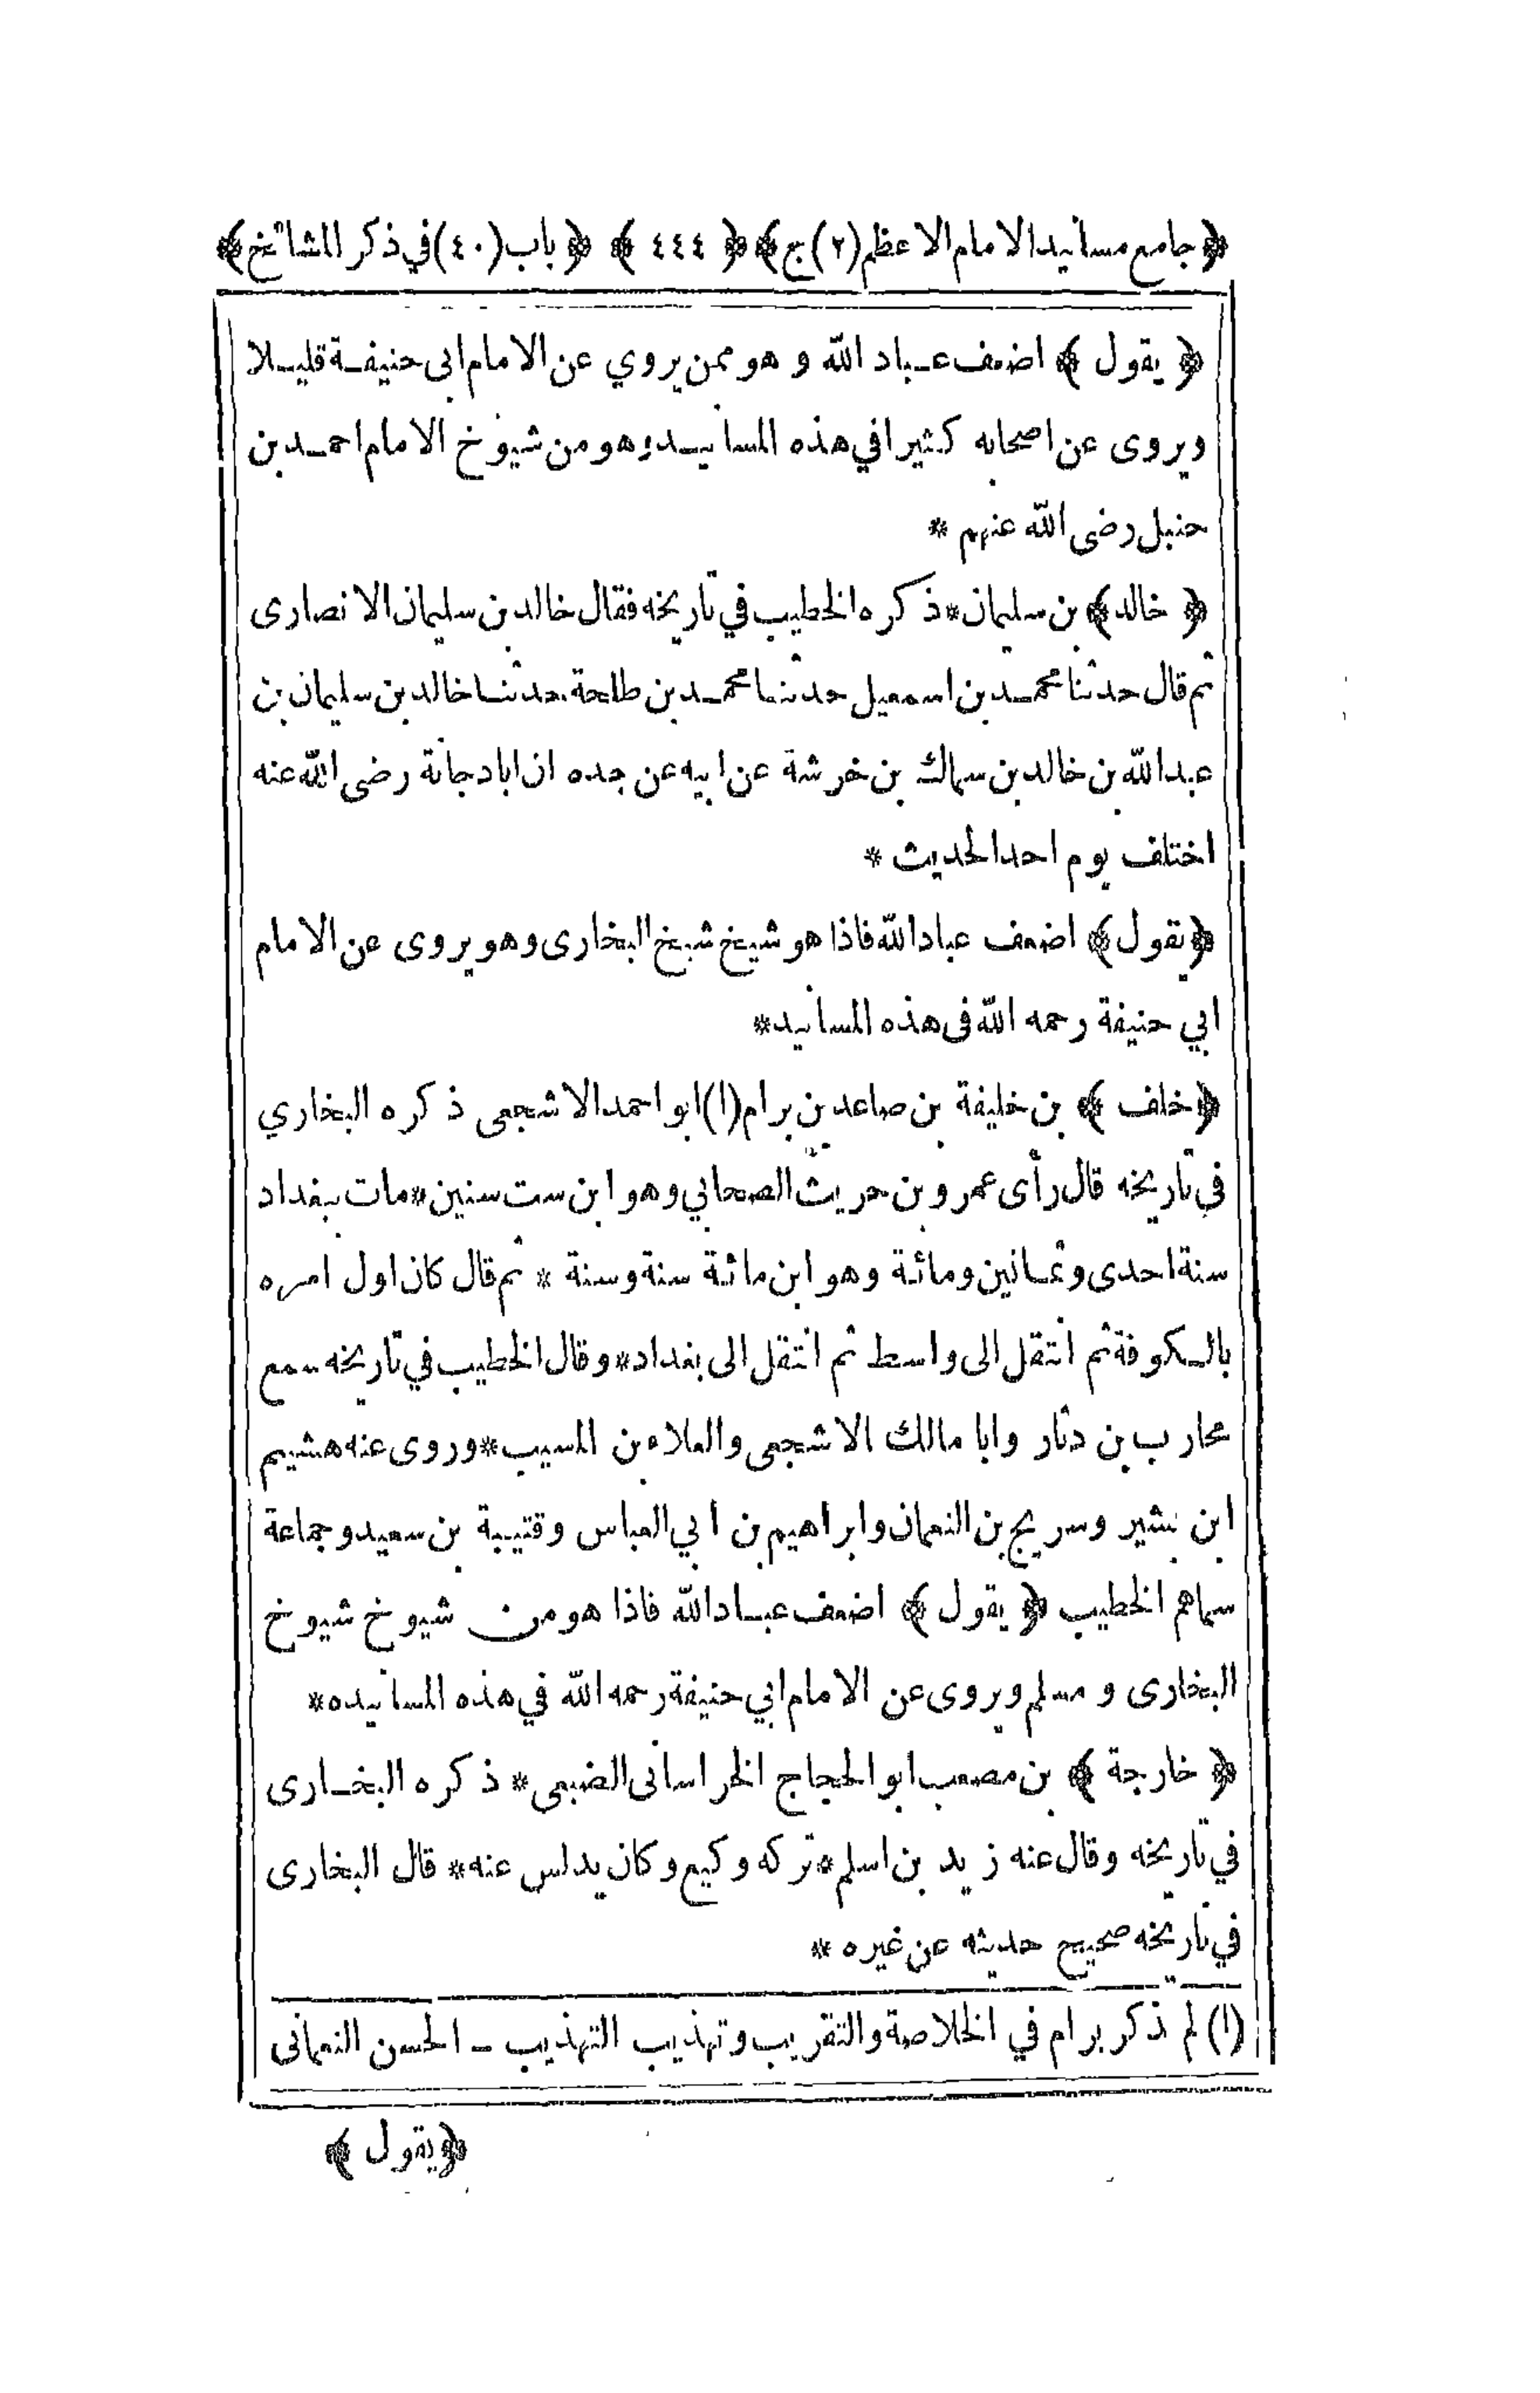 ﴿جامع مسانيد الامام الاعظم (٢) ج﴾ ﴿ ٤٤٤ ﴾ ﴿ باب (٤٠) في ذكر المشائخ ﴾
﴿ يقول ﴾ اضعف عباد الله و هو ممن يروي عن الامام ابى حنيفة قليلا
ويروى عن اصحابه كثيرا في هذه المسانيد وهو من شيوخ الامام احمد بن
حنبل رضى الله عنهم *
﴿ خالد ﴾ بن سليمان * ذكره الخطيب في تاريخه فقال خالد بن سليمان الانصارى
ثم قال حدثنا محمد بن اسمعيل حدثنا محمد بن طلحة حدثنا خالد بن سليمان بن
عبد الله بن خالد بن سماك بن خرشة عن ابيه عن جده ان ابا دجانة رضى الله عنه
اختلف يوم احد الحديث *
﴿ يقول ﴾ اضعف عباد الله فاذا هو شيخ شيخ البخارى وهو يروى عن الامام
ابي حنيفة رحمه الله فى هذه المسانيد *
﴿ خلف ﴾ بن خليفة بن صاعد بن برام (١) ابو احمد الاشجعى ذكره البخاري
في تاريخه قال رأى عمرو بن حريث الصحابي وهو ابن ست سنين * مات ببغداد
سنة احدى وثمانين ومائة وهو ابن مائة سنة وسنة * ثم قال كان اول امره
بالكوفة ثم انتقل الى واسط ثم انتقل الى بغداد * وقال الخطيب في تاريخه سمع
محارب بن دثار وابا مالك الاشجعى والعلاء بن المسيب * وروى عنه هشيم
ابن بشير وسريج بن النعمان وابراهيم بن ابي العباس وقتيبة بن سعيد وجماعة
سماهم الخطيب ﴿ يقول ﴾ اضعف عباد الله فاذا هو من شيوخ شيوخ
البخارى و مسلم ويروى عن الامام ابي حنيفة رحمه الله في هذه المسانيده *
﴿ خارجة ﴾ بن مصعب ابو الحجاج الخراسانى الضبعى * ذكره البخارى
في تاريخه وقال عنه زيد بن اسلم * تركه وكيع وكان يدلس عنه * قال البخارى
في تاريخه صحيح حديثه عن غيره *
(١) لم يذكر برام في الخلاصة والتقريب وتهذيب التهذيب - الحسن النعمانى
﴿ يقول ﴾